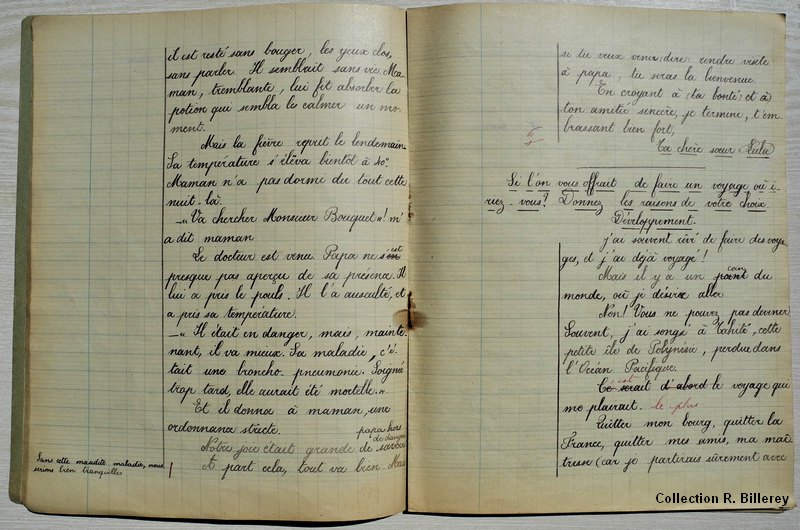 il est resté sans bouger, les yeux clos,
sans parler. Il semblait sans vie. Ma-
man, tremblante, lui fit absorber la
potion qui sembla le calmer un mo-
ment.
Mais la fièvre reprit le lendemain.
Sa température s'éleva bientôt à 40°.
Maman n'a pas dormi du tout cette
nuit-là.
_ « Va chercher Monsieur Bouquet »! m'
a dit maman
Le docteur est venu. Papa ne s'est
presque pas aperçu de sa présence. Il
lui a pris le pouls. Il l'a ausculté, et
a pris sa température.
_ « Il était en danger, mais, mainte-
nant, il va mieux. Sa maladie, c'é-
tait une broncho-pneumonie. Soignée
trop tard, elle aurait été mortelle. »
Et il donna à maman, une
ordonnance stricte.
papa hors
de danger
Notre joie était grande de savoir
Et part cela, tout va bien. Mais
Sans cette maudite maladie, nous
serions bien tranquilles
si tu veux venir (dire) rendre visite
à papa, tu seras la bienvenue.
En croyant à (ta bonté) et à)
ton amitié sincère, je termine, t'em-
brassant bien fort,
Ta chère sœur Lulu
Si l'on vous offrait de faire un voyage où i-
riez-vous? Donnez les raisons de votre choix
Développement.
J'ai souvent rêvé de faire des voya-
ges, et j'ai déjà voyagé!
Mais il y a un point coin du
monde, où je désire aller
Non! Vous ne pouvez pas deviner
Souvent, j'ai songé à Tahiti, cette
petite île de Polynésie, perdue dans
l'Océan Pacifique.
Ce serait est d'abord le voyage qui
me plairait. le plus
Quitter mon bourg, quitter la
France, quitter mes amis, ma maî-
tresse (car je partirais sûrement avec
Collection R. Billerey